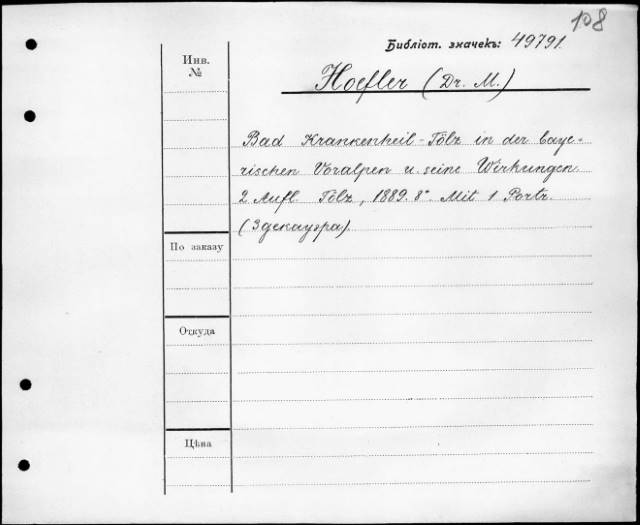 108
Библіот. значекъ: 49791.
Инв.
№
Hoefler (Dr. M.)
Bad Krankenheil-Tölz in der baye-
rischen Voralpen u. seine Wirkungen.
2 Aufl. Tölz, 1889. 8°. Mit 1 Portr.
(3 декауэра).
По заказу
Откуда
Цѣна